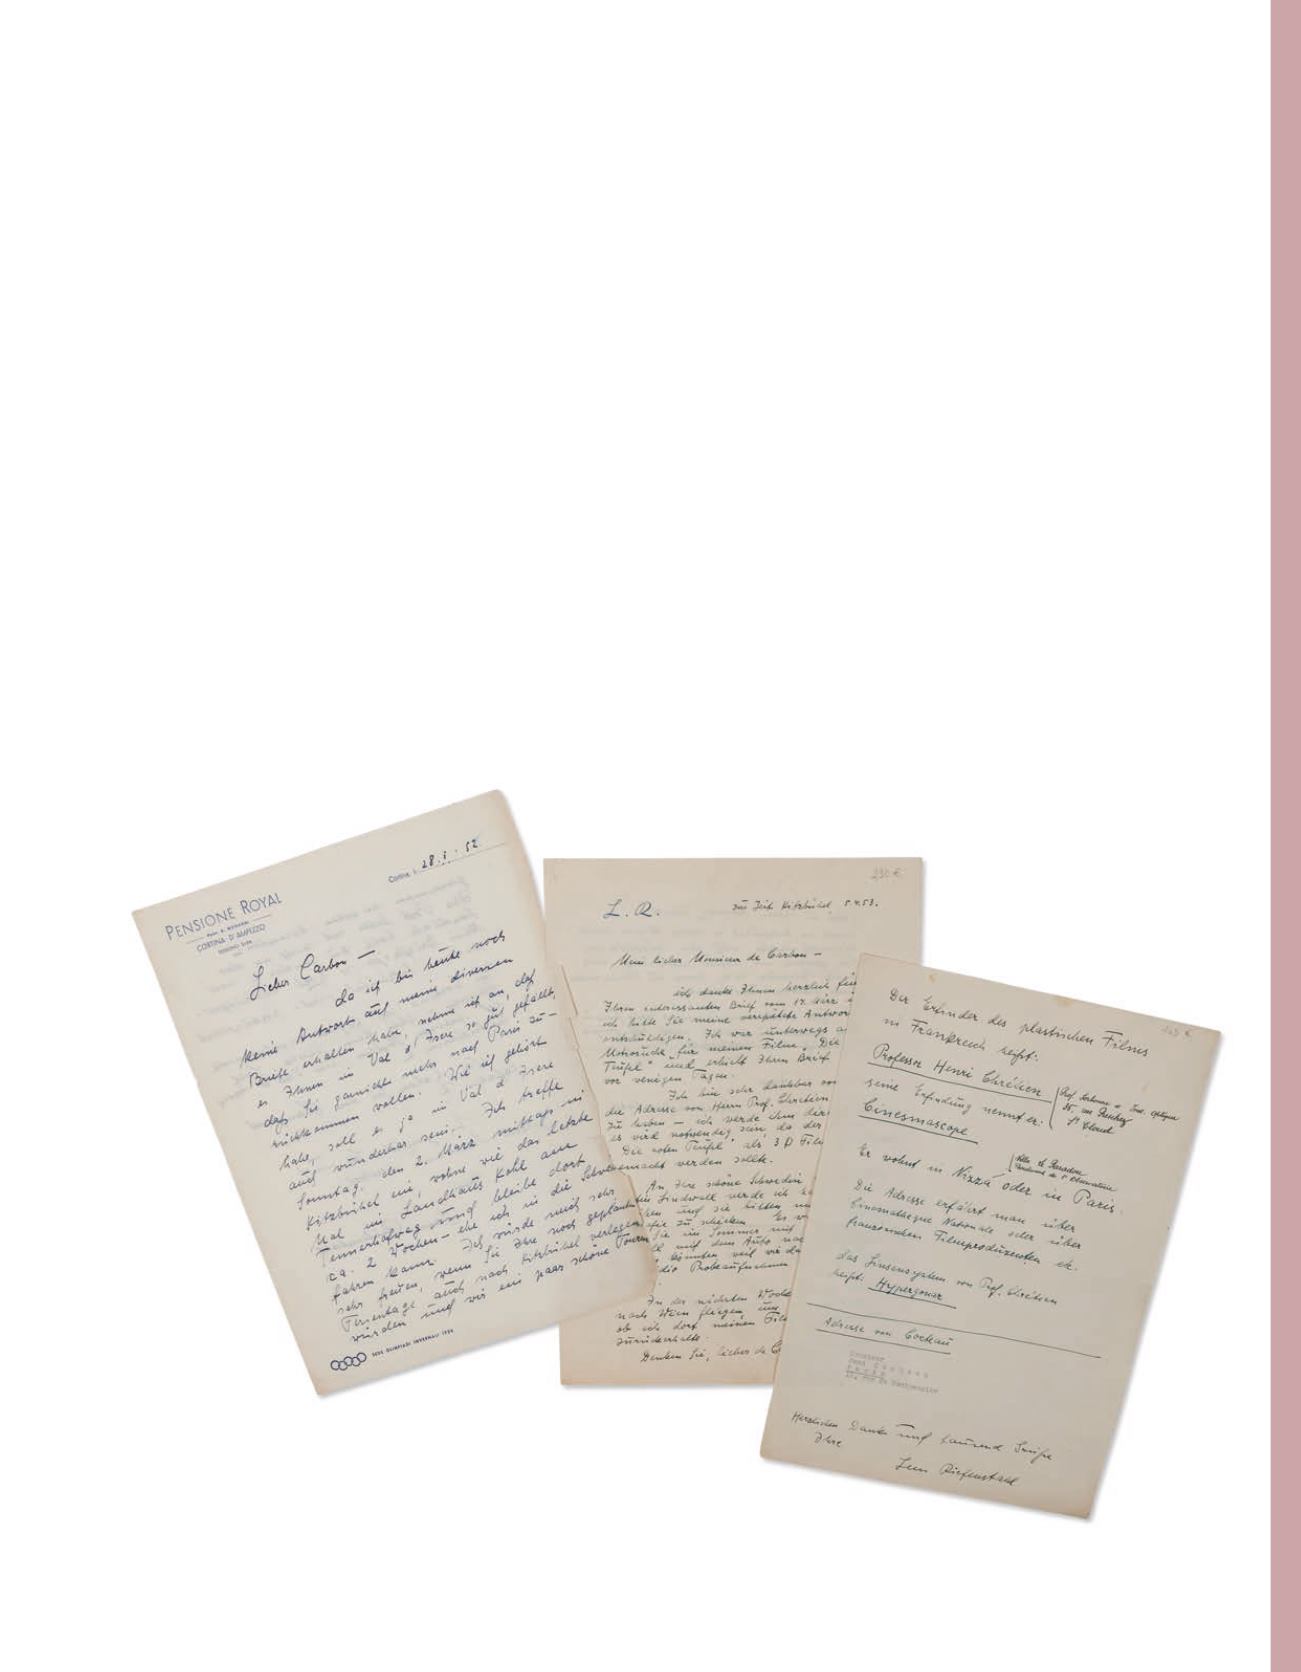 PENSIONE ROYAL
CORTINA D'AMPEZZO
Cortina, 28. . 52
Lieber Carbon —
da ich bis heute noch
keine Antwort auf meine diversen
Briefe erhalten habe, nehme ich an, daß
es Ihnen in Val d'Isere so gut gefällt,
daß Sie garnicht mehr nach Paris zu-
rückkommen wollen. Wie ich gehört
habe, soll es ja in Val d Isere
auch wunderbar sein. Ich treffe
Sonntag, den 2. März mittags in
Kitzbühel ein, wohne wie das letzte
Mal im Landhaus Kohl am
und bleibe dort
ca. 2 Wochen – ehe ich in die Schweiz
fahren kann. Ich würde mich sehr
sehr freuen, wenn Sie Ihre noch geplanten
Ferientage auch nach Kitzbühel verlegen
würden und wir ein paar schöne Touren
SEDE OLIMPIADI INVERNALI 1956
230 €
L. R.
zur Zeit Kitzbühel, 5.4.53.
Mein lieber Monsieur de Carbon –
ich danke Ihnen herzlich für
Ihren interessanten Brief vom 17. März
ich bitte Sie meine verspätete Antwort
entschuldigen. Ich war unterwegs
Motivsuche für meinen Film „Die
Teufel" und erhielt Ihren Brief
vor wenigen Tagen.
Ich bin sehr dankbar
die Adresse von Herrn Prof. Chrétien
zu haben – ich werde ihm
es wird notwendig sein, da der
Die roten Teufel" als 3 D Film
gemacht werden sollte.
An Ihre schöne Schwedin
Lindwall werde ich
und sie bitten
zu schicken.
Sie im Sommer mit
mit dem Auto
könnten weil wir
Probeaufnahmen
In der nächsten Woche
nach Wien fliegen um
ob ich dort meinen Film
zurückerhalte.
Denken Sie, lieber de C
Der Erfinder des plastischen Films
in Frankreich heißt:
Professor Henri Chrétien
seine Erfindung nennt er:
Cinemascope
St Cloud
Er wohnt in Nizza oder in Paris.
Die Adresse erfährt man über
Cinematheque Nationale oder über
französischen Filmproduzenten etc.
das Linsensystem von Prof. Chrétien
heißt: Hypergonar
Adresse von Cocteau
Monsieur
Herzlichen Dank und tausend Grüße
Ihre
Leni Riefenstahl